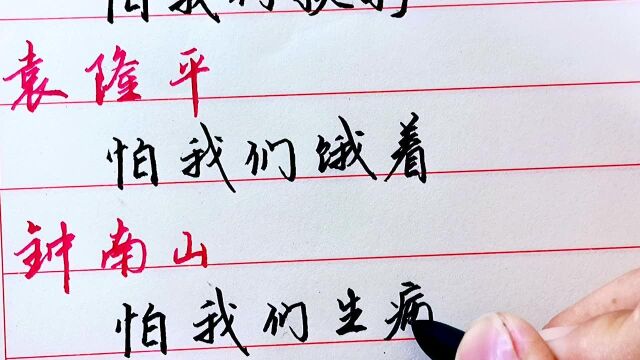 怕我们
袁隆平
怕我们饿着
钟南山
怕我们生病